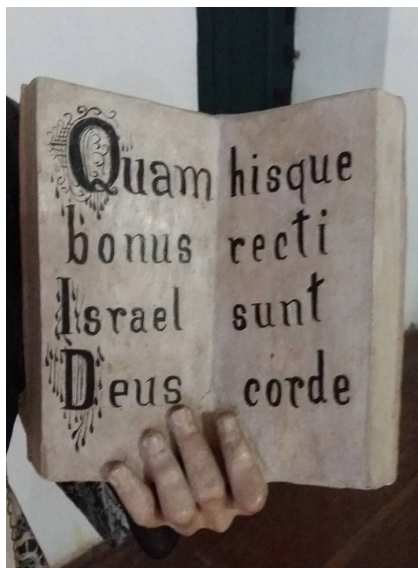 Quam
bonus
Israel
Deus
hisque
recti
sunt
corde